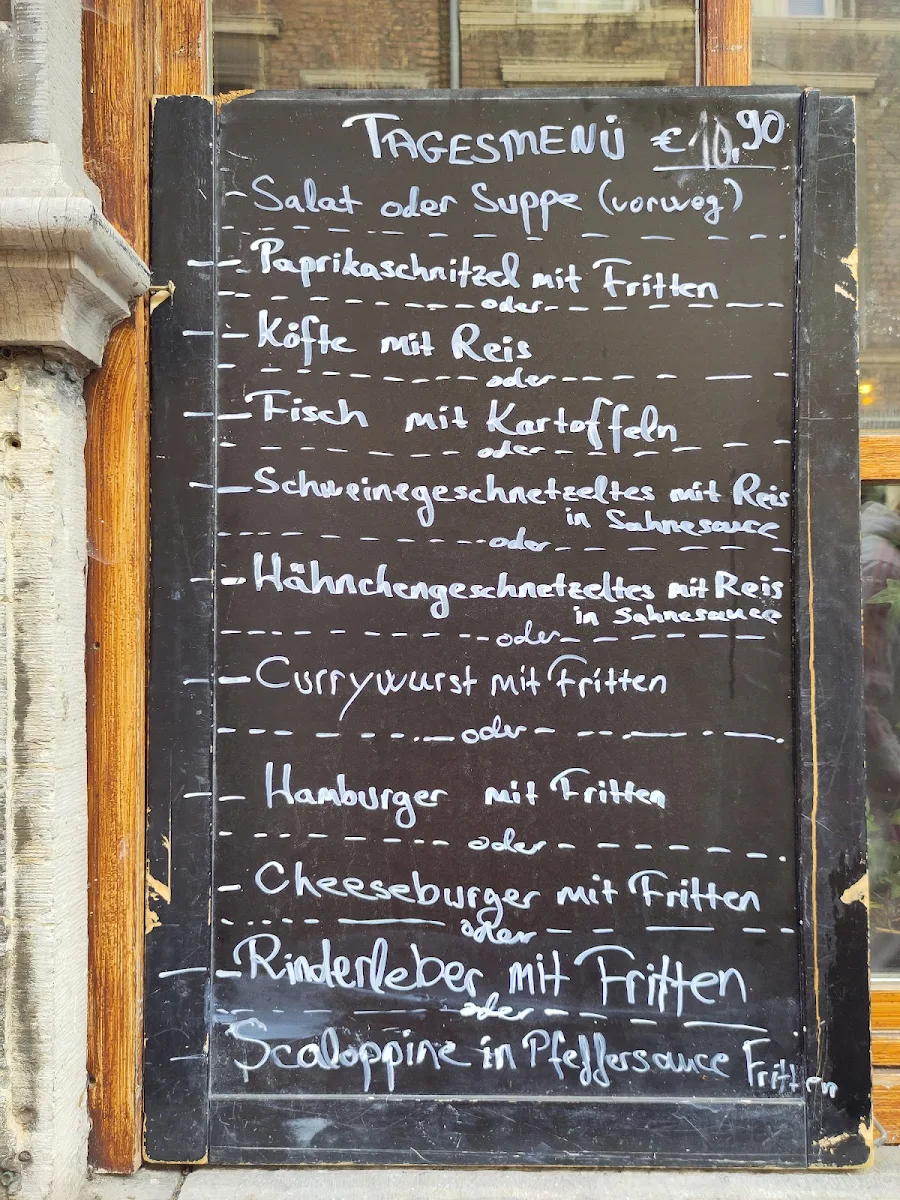 TAGESMENÜ € 10,90
- Salat oder Suppe (vorweg)
- Paprikaschnitzel mit Fritten
oder
- Köfte mit Reis
oder
- Fisch mit Kartoffeln
oder
- Schweinegeschnetzeltes mit Reis
in Sahnesauce
oder
- Hähnchengeschnetzeltes mit Reis
in Sahnesauce
oder
- Currywurst mit Fritten
oder
- Hamburger mit Fritten
oder
- Cheeseburger mit Fritten
oder
- Rinderleber mit Fritten
oder
Scaloppine in Pfeffersauce Fritten